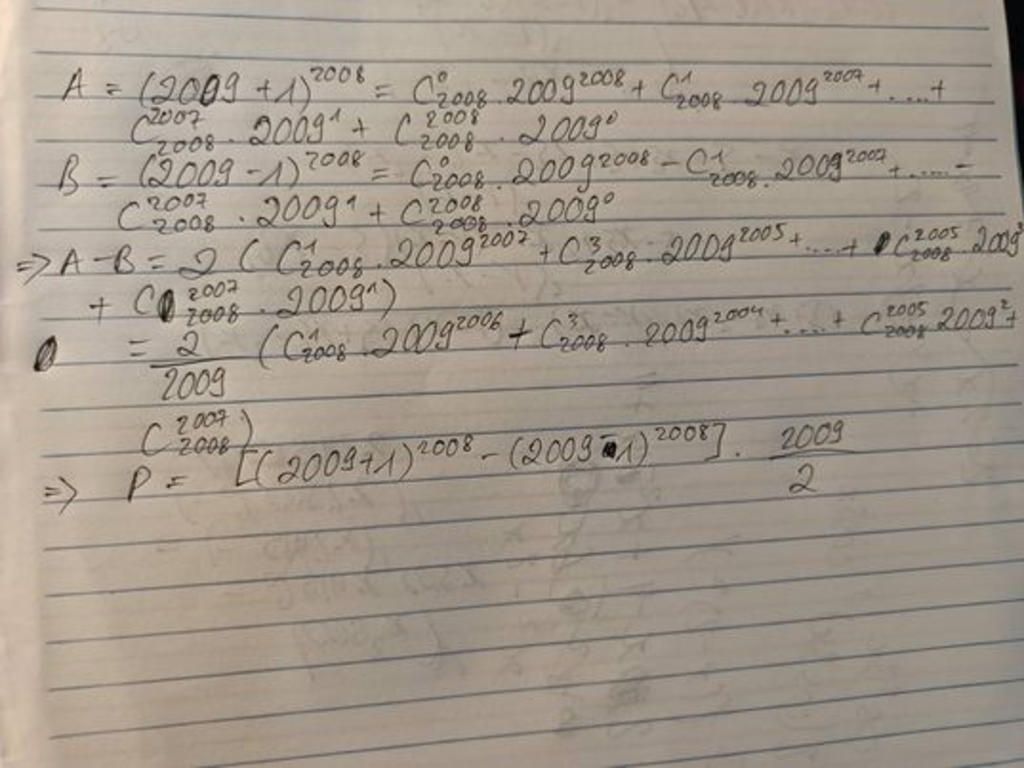 A = (2009 + 1)^2008 = C^0_2008 . 2009^2008 + C^1_2008 . 2009^2007 + .... +
C^2007_2008 . 2009^1 + C^2008_2008 . 2009^0
B = (2009 - 1)^2008 = C^0_2008 . 2009^2008 - C^1_2008 . 2009^2007 + ..... -
C^2007_2008 . 2009^1 + C^2008_2008 . 2009^0
=> A - B = 2 ( C^1_2008 . 2009^2007 + C^3_2008 . 2009^2005 + .... + C^2005_2008 . 2009^3
+ C^2007_2008 . 2009^1 )
= 2/2009 ( C^1_2008 . 2009^2006 + C^3_2008 . 2009^2004 + .... + C^2005_2008 2009^2 +
C^2007_2008 )
=> P = [(2009+1)^2008 - (2009-1)^2008] . 2009/2